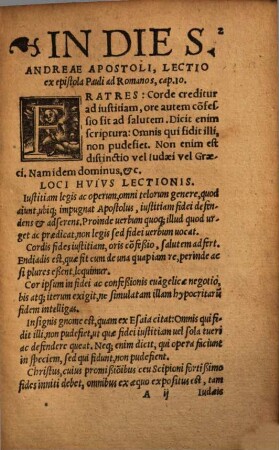 2
IN DIE S.
ANDREAE APOSTOLI, LECTIO
ex epistola Pauli ad Romanos, cap.10.
FRATRES: Corde creditur
ad iustitiam, ore autem cõfes-
sio fit ad salutem. Dicit enim
scriptura: Omnis qui fidit illi,
non pudefiet. Non enim est
distinctio vel Iudæi vel Græ-
ci. Nam idem dominus, &c.
LOCI HVIVS LECTIONIS.
Iustitiam legis ac operum, omni telorum genere, quod
aiunt, ubiq; impugnat Apostolus, iustitiam fidei defen-
dens & adserens. Proinde uerbum quoq; illud quod urget
ac prædicat, non legis sed fidei uerbum uocat.
Cordis fides iustitiam, oris cõfessio, salutem adfert.
Endiadis est, quæ fit cum de una quapiam re, perinde ac
si plures essent, loquimur.
Cor ipsum in fidei ac confeßionis euãgelicæ negotio,
bis atq; iterum exigit, ne simulatam illam hypocritarũ
fidem intelligas.
Insignis gnome est, quam ex Esaia citat: Omnis qui fi-
dit illi, non pudefiet, ut quæ fidei iustitiam uel sola tueri
ac defendere queat. Neq; enim dicit, qui opera faciunt
in speciem, sed qui fidunt, non pudefient.
Christus, cuius promißiõibus ceu Scipioni fortißimo
fides inniti debet, omnibus ex æquo expositus est, tam
A ij Iudæis